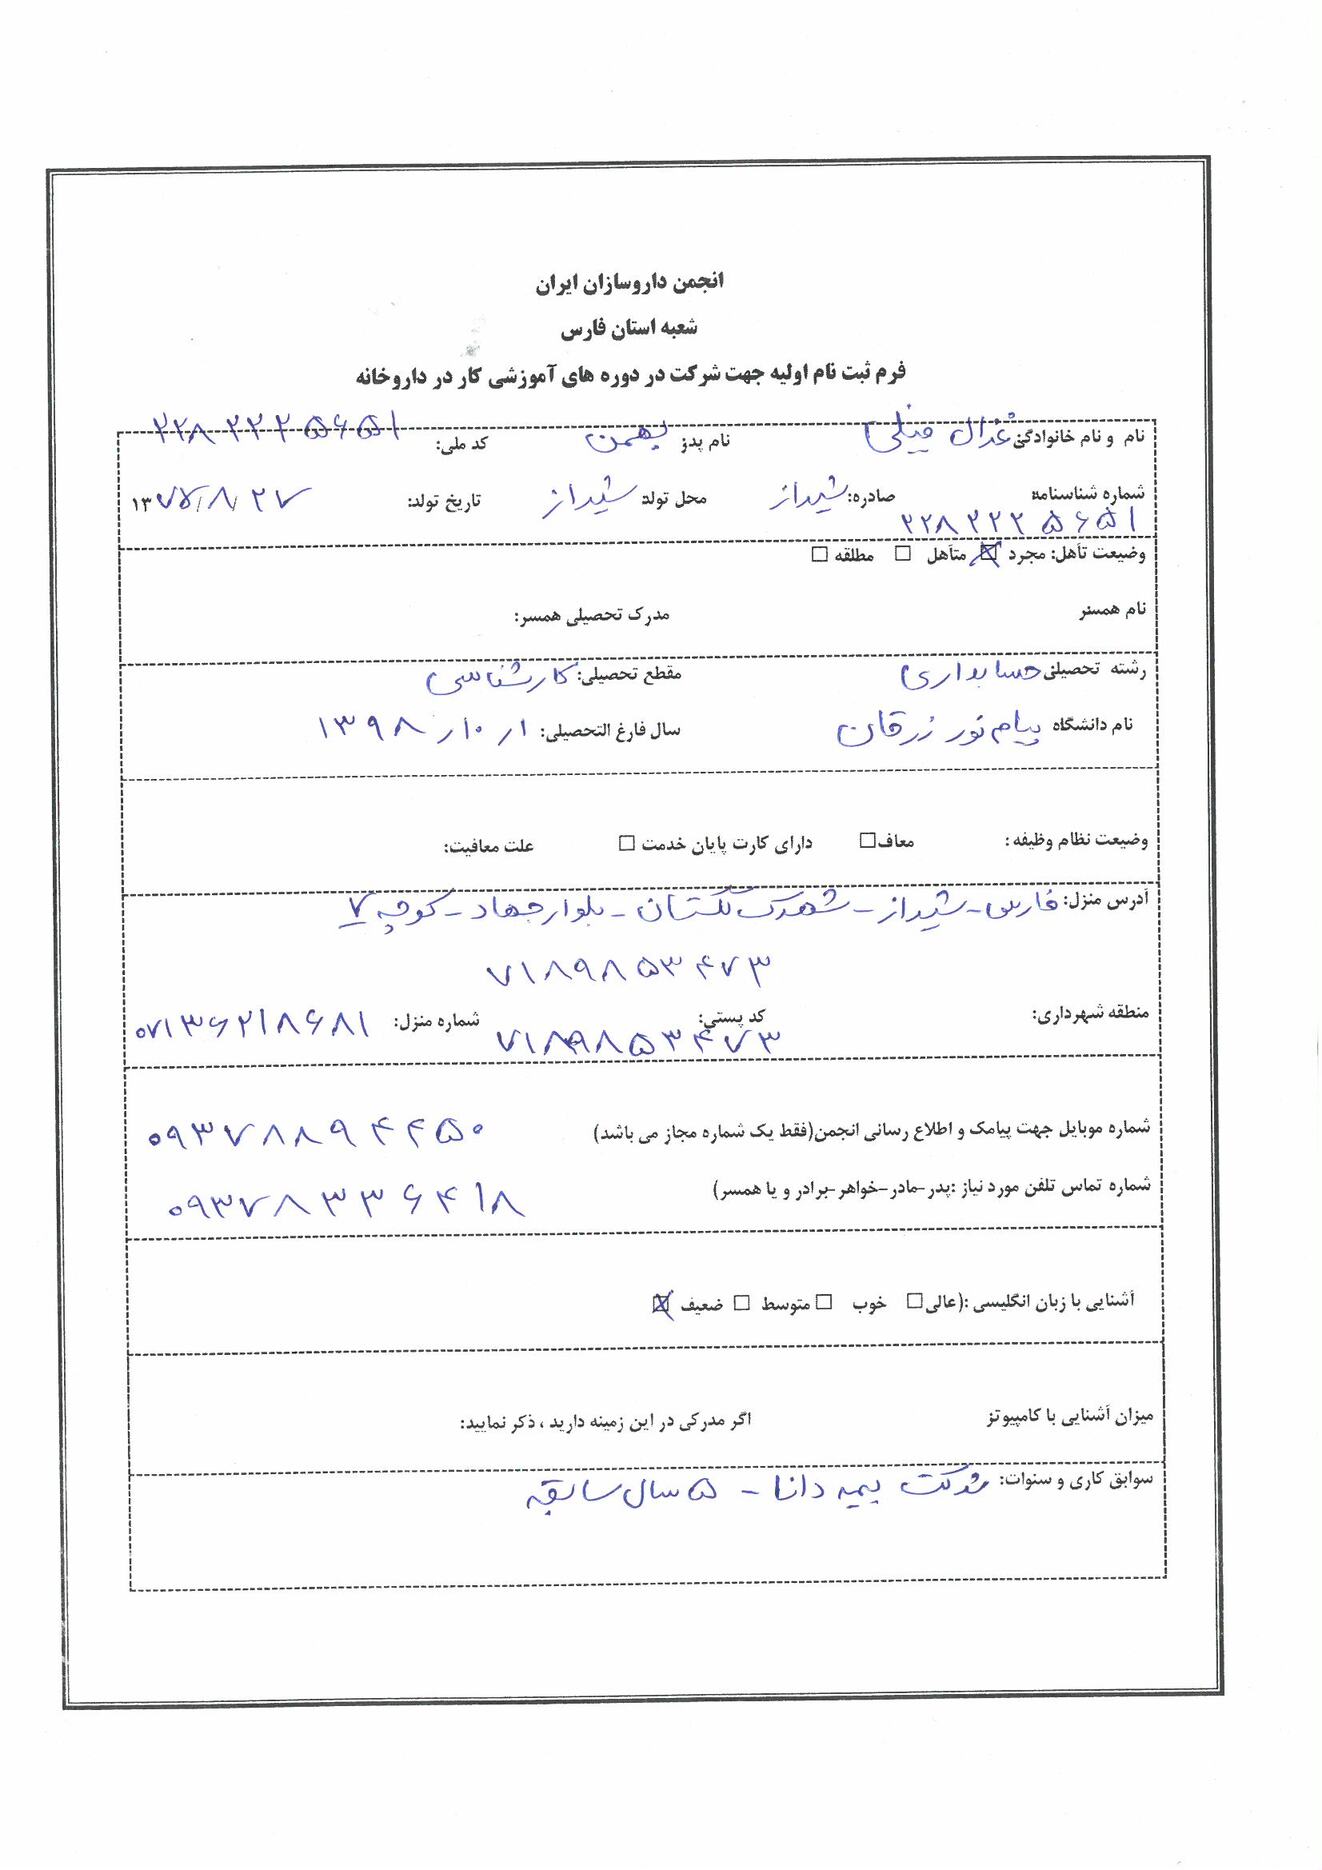 انجمن داروسازان ایران
شعبه استان فارس
فرم ثبت نام اولیه جهت شرکت در دوره های آموزشی کار در داروخانه
نام و نام خانوادگی: غزال نام پدر: بهمن کد ملی: ۲۲۸۲۲۲۵۶۵۱
شماره شناسنامه: صادره: شیراز محل تولد: شیراز تاریخ تولد: ۱۳۷۵/۸/۲۷
۲۲۸۲۲۲۵۶۵۱
وضعیت تأهل: مجرد ☒ متأهل ☐ مطلقه ☐
نام همسر: مدرک تحصیلی همسر:
رشته تحصیلی: حسابداری مقطع تحصیلی: کارشناسی
نام دانشگاه: پیام نور زرقان سال فارغ التحصیلی: ۱۳۹۸/۱۰/۱
وضعیت نظام وظیفه: معاف ☐ دارای کارت پایان خدمت ☐ علت معافیت:
آدرس منزل: فارس - شیراز - شهرک گلستان - بلوار جهاد - کوچه ۷
۷۱۸۹۸۵۳۴۷۳
منطقه شهرداری: کد پستی: شماره منزل: ۰۷۱۳۶۲۱۸۶۸۱
۷۱۸۹۸۵۳۴۷۳
شماره موبایل جهت پیامک و اطلاع رسانی انجمن(فقط یک شماره مجاز می باشد) ۰۹۳۷۸۸۹۴۴۵۰
شماره تماس تلفن مورد نیاز :پدر-مادر-خواهر-برادر و یا همسر) ۰۹۳۷۸۳۳۶۴۱۸
آشنایی با زبان انگلیسی :(عالی ☐ خوب ☐ متوسط ☐ ضعیف ☒
میزان آشنایی با کامپیوتر: اگر مدرکی در این زمینه دارید ، ذکر نمایید:
سوابق کاری و سنوات: شرکت بیمه دانا - ۵ سال سابقه